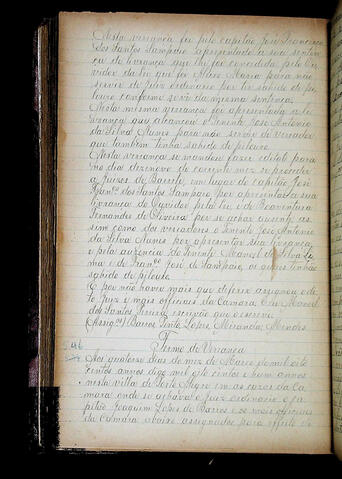 Nesta vereança foi pelo capitão José Francisco
dos Santos Sampaio apresentado a sua senten
ça de livrança que lhe foi concedida pelo Ou
vidor da lei que foi Maria para não
servir de Juiz ordinario por ter sahido de pe
louro conforme se vê da mesma sentença.
Nesta mesma vereança foi apresentada a li
vrança que alcançou o Tenente José Antonio
da Silva Nunes para não servir de vereador
que tambem tinha sahido de pelouro.
Nesta vereança se mandou fazer edital para
no dia dezenove do corrente mez se proceder
a Juizes de Barrete, em lugar do capitão José
Franco dos Santos Sampaio por apresentar a sua
livrança do Ouvidor pela lei e de Boaventura
Fernandes de Oliveira por se achar ausente as
sim como dos vereadores o Tenente José Antonio
da Silva Nunes por apresentar sua livrança,
e pela ausencia do Tenente Manoel da Silva Li
ma e de Franco José de Sampaio, os quaes tinhão
sahido de pelouro.
E por não haver mais que deferir assignou o di
to Juiz e mais officiaes da Camara. Eu Manoel
dos Santos escrivão que o escrevi.
(Assigos) Barros Pinto, Lopes, Miranda, Mendes
546
Termo de Vereança
Aos quatorze dias do mez de Março de mil oito
centos annos digo mil oito centos e hum annos
nesta villa de Porto Alegre em as cazas da Ca
mara onde se achava o Juiz ordinario o Ca
pitão Joaquim Lopes de Barros e os mais officiaes
da Camara abaixo assignados para effeito de